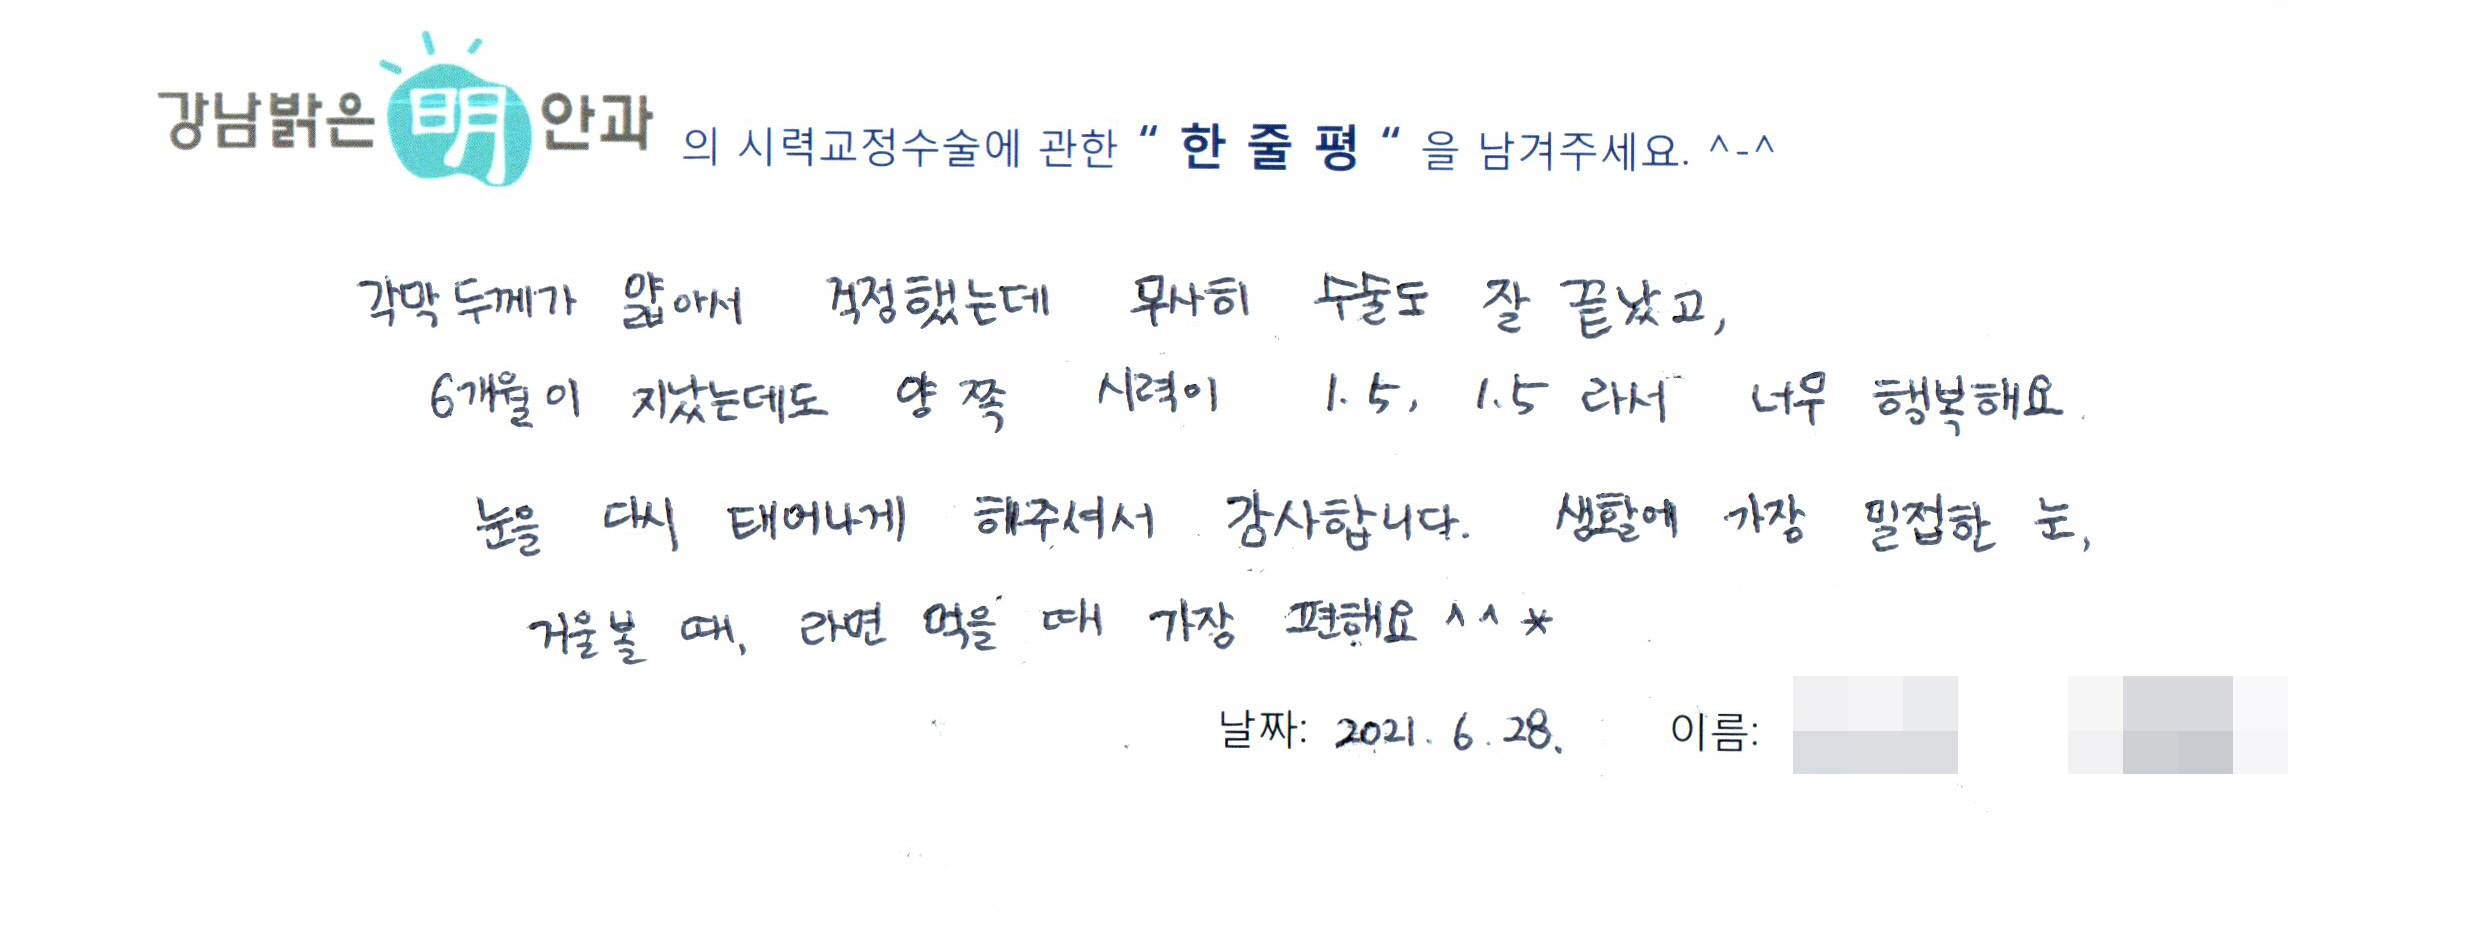 강남밝은 明 안과 의 시력교정수술에 관한 “ 한 줄 평 “ 을 남겨주세요. ^-^
각막 두께가 얇아서 걱정했는데 무사히 수술도 잘 끝났고,
6개월이 지났는데도 양쪽 시력이 1.5, 1.5 라서 너무 행복해요.
눈을 다시 태어나게 해주셔서 감사합니다. 생활에 가장 밀접한 눈,
거울 볼 때, 라면 먹을 때 가장 편해요 ^^*
날짜: 2021. 6. 28. 이름: